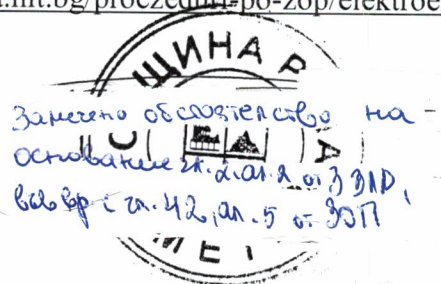 a.hit.bg/proczeduri-po-zop/elektroe
ЩИНА Р
Заличено обстоятелство на
основание чл.2, ал.2 от ЗЗЛД,
във вр с чл.42, ал.5 от ЗОП
КМЕТ